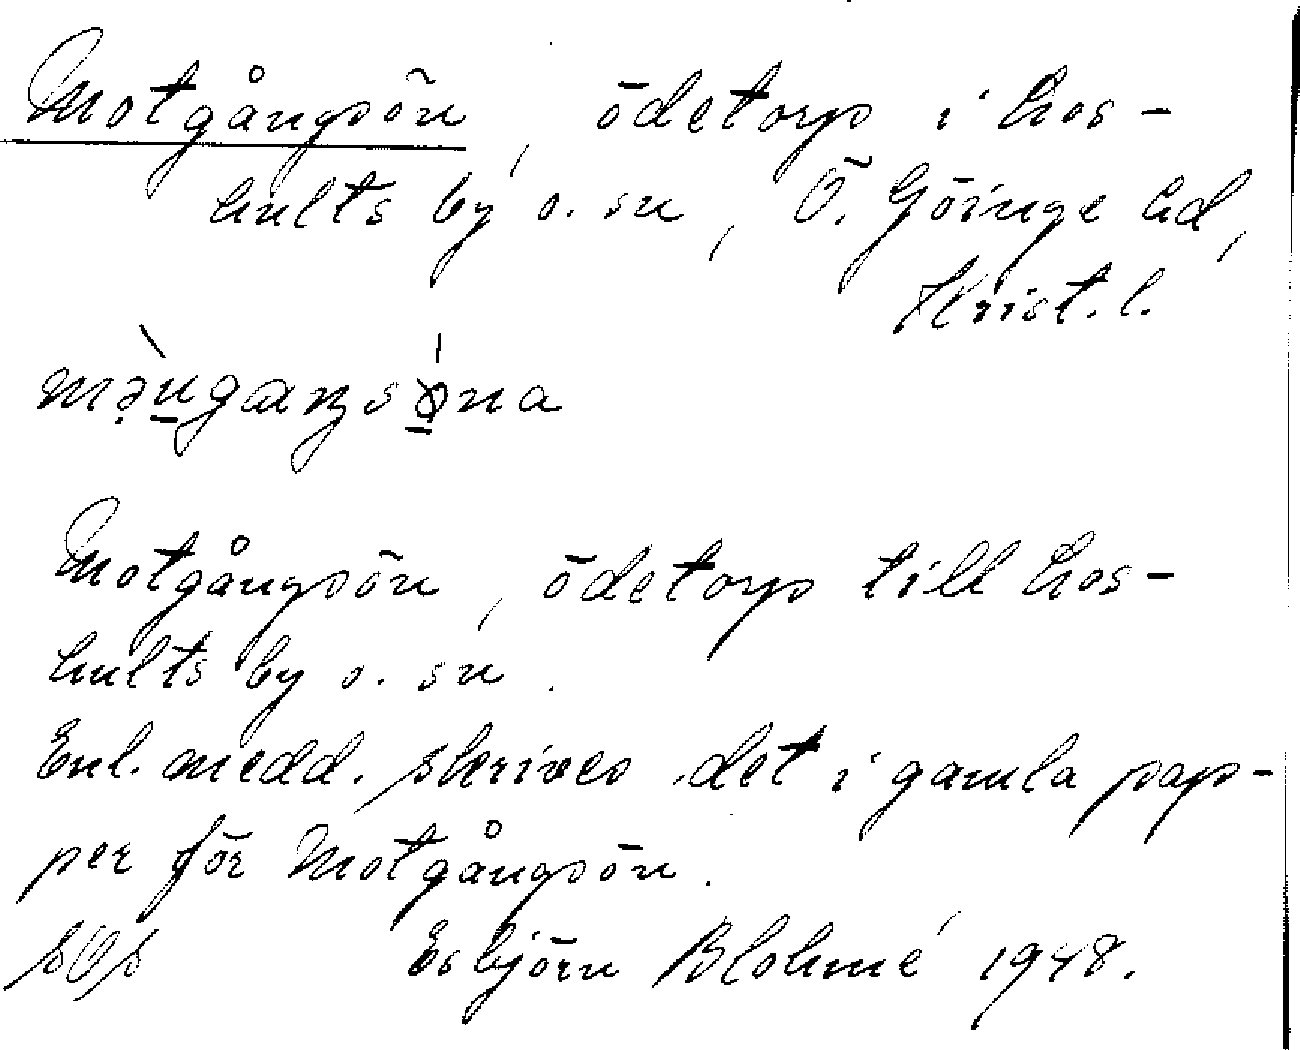 Motgångsön, ödetorp i Hos-
hults by o. sn, Ö. Göinge hd,
Krist. l.
Motgångsön, ödetorp till Hos-
hults by o. sn.
Enl. medd. skrives det i gamla pap-
per för Motgångsön.
Esbjörn Blohmé 1948.